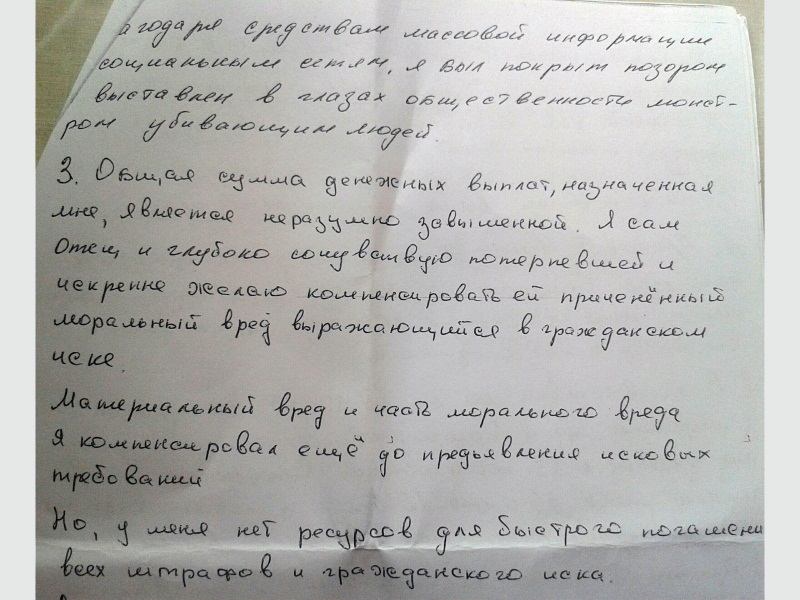 агодаря средствам массовой информации
социальным сетям, я был покрыт позором
выставлен в глазах общественности монст-
ром убивающим людей.
3. Общая сумма денежных выплат, назначенная
мне, является неразумно завышенной. Я сам
Отец и глубоко сочувствую потерпевшей и
искренне желаю компенсировать ей приченённый
моральный вред выражающийся в гражданском
иске.
Материальный вред и часть морального вреда
я компенсировал ещё до предьявления исковых
требований
Но, у меня нет ресурсов для быстрого погашени
всех штрафов и гражданского иска.